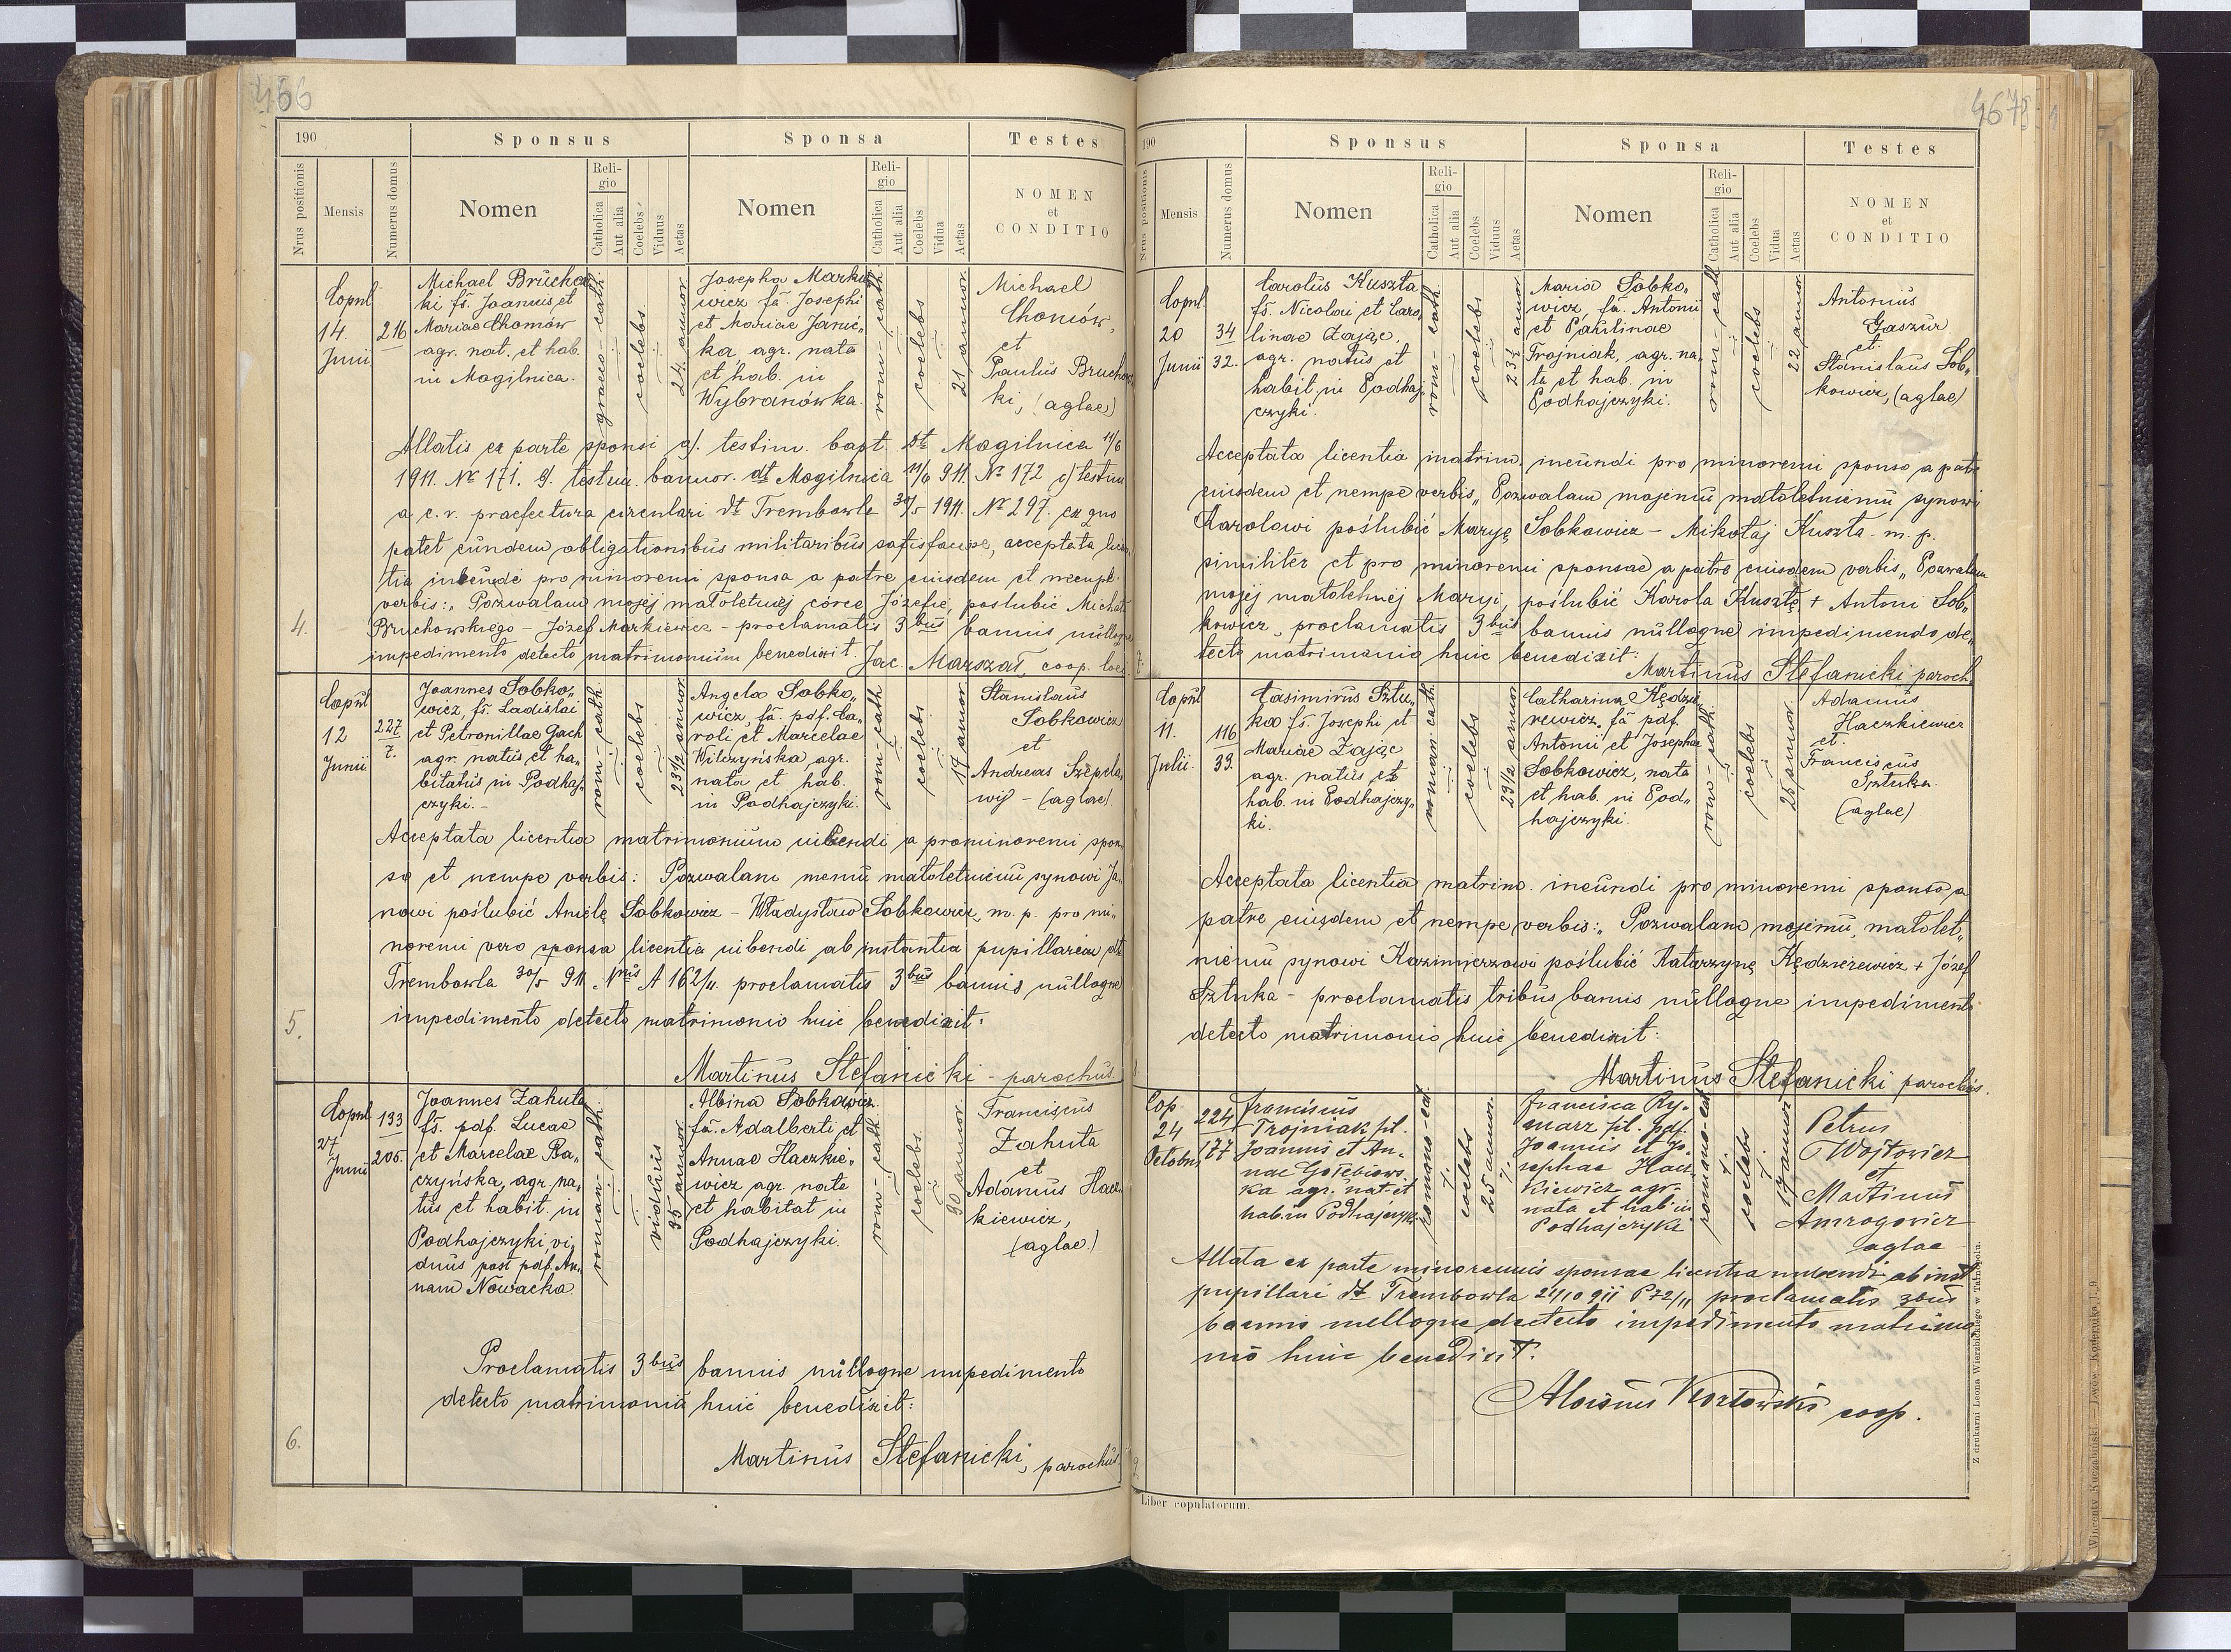 466
190
Sponsus
Sponsa
Testes
Nrus positionis
Mensis
Numerus domus
Nomen
Religio
Catholica
Aut alia
Coelebs
Viduus
Aetas
Nomen
Religio
Catholica
Aut alia
Coelebs
Vidua
Aetas
NOMEN
et
CONDITIO
4.
Copul
14.
Junii
216
Michael Bruchow
ki fs. Joannis et
Mariae Chomów
agr. nat. et hab.
in Mogilnica.
graeco-cath.
coelebs
24. annor.
Josepha Markie
wicz fa. Josephi
et Mariae Janic„
ka, agr. nata
et hab. in
Wybranówka.
rom-cath
coelebs
21 annor
Michael
Chomów,
et
Paulus Bruchow
ki, (aglae)
Allatis ex parte sponsi a). testim. bapt. dt Mogilnica 11/6
1911. Nr 171. b). testim. bannor. dt Mogilnica 11/6 911. Nr 172 c) testim
a c. r. praefectura circulari dt Trembowla 30/5 1911. Nr 297. ex quo
patet eundem obligationibus militaribus satisfacisse, acceptata licen
tia pro minoremi sponsa a patre eiusdem et nempe
verbis: „Pozwalam mojej małoletniej córce Józefie, poślubić Michała
Bruchowskiego – Józef Markiewicz – proclamatis 3bus bannis nulloque
impedimento detecto matrimonium benedixit. Jac. Marszał, coop. loci
5.
Copul
12
Junii
227
7.
Joannes Sobko„
wicz, fs. Ladislai
et Petronillae Gach
agr. natus et ha„
bitatus in Podhaj„
czyki.–
rom-cath.
coelebs
23 1/2 annor
Angela Sobko„
wicz, fa. pdf. Ca„
roli et Marcelae
Wilczyńska, agr.
nata et hab.
in Podhajczyki.
rom-cath
coelebs
17 annor
Stanislaus
Sobkowicz
et
Andreas
– (aglae)
Acceptata licentia matrimonium a prominoremi spon„
so et nempe verbis: Pozwalam memu małoletniemu synowi Ja„
nowi poślubić Anielę Sobkowicz – Władysław Sobkowicz, m. p. pro mi„
noremi vero sponsa licentia nubendi ab instantia pupillarum dt
Trembowla 30/5 911. Nrus A 162/11. proclamatis 3bus bannis nulloque
impedimento detecto matrimonio huic benedixit:
Martinus Stefanicki – parochus
6.
Copul
27
Junii
133
205.
Joannes Zahuta
fs. pdf. Lucae
et Marcelae Ba„
czyńska, agr. na„
tus et habit. in
Podhajczyki, vi„
duus post pdf. An„
nam Nowacka.
roman-cath.
viduus
35 annor
Albina Sobkowicz
fa. Adalberti et
Annae Haczkie„
wicz agr. nata
et habitat in
Podhajczyki.
rom-cath
coelebs
30 annor
Franciscus
Zahuta
et
Adamus Hacz
kiewicz,
(aglae.)
Proclamatis 3bus bannis nulloque impedimento
detecto matrimoniu huic benedixit:
Martinus Stefanicki, parochus.
467
190
Sponsus
Sponsa
Testes
Nrus positionis
Mensis
Numerus domus
Nomen
Religio
Catholica
Aut alia
Coelebs
Viduus
Aetas
Nomen
Religio
Catholica
Aut alia
Coelebs
Vidua
Aetas
NOMEN
et
CONDITIO
7.
Copul
20
Junii
34
32.
Carolus Kuszta
fs. Nicolai et Caro„
linae Zając,
agr. natus et
habit. in Podhaj„
czyki.
rom-cath
coelebs
Maria Sobko„
wicz, fa. Antonii
et Paulinae
Trojniak, agr. na„
ta et hab. in
Podhajczyki.
rom-cath
coelebs
22 annor
Antonius
Gaszur.
et
Stanislaus Sob„
kowicz, (aglae)
Acceptata licentia matrim. ineundi pro minoremi sponso a patre
eiusdem et nempe verbis „Pozwalam mojemu małoletniemu synowi
Karolowi poślubić Maryę Sobkowicz – Mikołaj Kuszta. m. p.
similiter et pro minoremi sponsae a patre eiusdem verbis „Pozwalam
mojej małoletniej Maryi, poślubić Karola Kusztę + Antoni Sob„
kowicz, proclamatis 3bus bannis nulloque impedimendo de„
tecto matrimonio huic benedixit:
Martinus Stefanicki paroch
Copul
11.
Julii.
116
33.
Casimirus Sztu„
ka fs. Josephi et
Mariae Zając
agr. natus et
hab. in Podhajczy„
ki.
roman cath
coelebs
23 1/2 annor
Catharina Kędzie
rewicz. fa pdf.
Antonii et Josephae
Sobkowicz, nata
et hab. in Pod„
hajczyki.
rom-cath.
coelebs
25 annor
Adamus
Haczkiewicz
et.
Franciscus
Sztuka.
(aglae)
Acceptata licentia matrimo. ineundi pro minoremi sponso a
patre eiusdem et nempe verbis: „Pozwalam mojemu, małolet„
niemu synowi Kazimierzowi poślubić Katarzynę Kędzierewicz + Józef
Sztuka – proclamatis tribus bannis nulloque impedimento
detecto matrimonio huic benedixit:
Martinus Stefanicki parochus.
Cop
24
Octobris
224
177
Franciscus
Trojniak fil.
Joannis et An-
nae Gołebiows
ka agr. nat. et
hab. in Podhajczyki
romano-cat.
coelebs
25 annor
Francisca Ry-
marz fil. pdf.
Joannis et Jo-
sephae Hacz
kiewicz agr.
nata et hab in
Podhajczyki
romano-cat
coelebs
17 annor
Petrus
Wojtowicz
et
Martinus
Amrogowicz
aglae
Allata ex parte minorennis sponsae licentia nubendi ab inst.
pupillari dt Trembowla 21/10 911 P72/11 proclamatis 3bus
bannis nulloque detecto impedimento matrimo
nio huic benedixit.
Aloisius Kozłowski coop.
Liber copulatorum.
Z drukarni Leona Wierzbickiego w Tarnopolu.
Wincenty Kuczabiński – Lwów, Kopernika l. 9